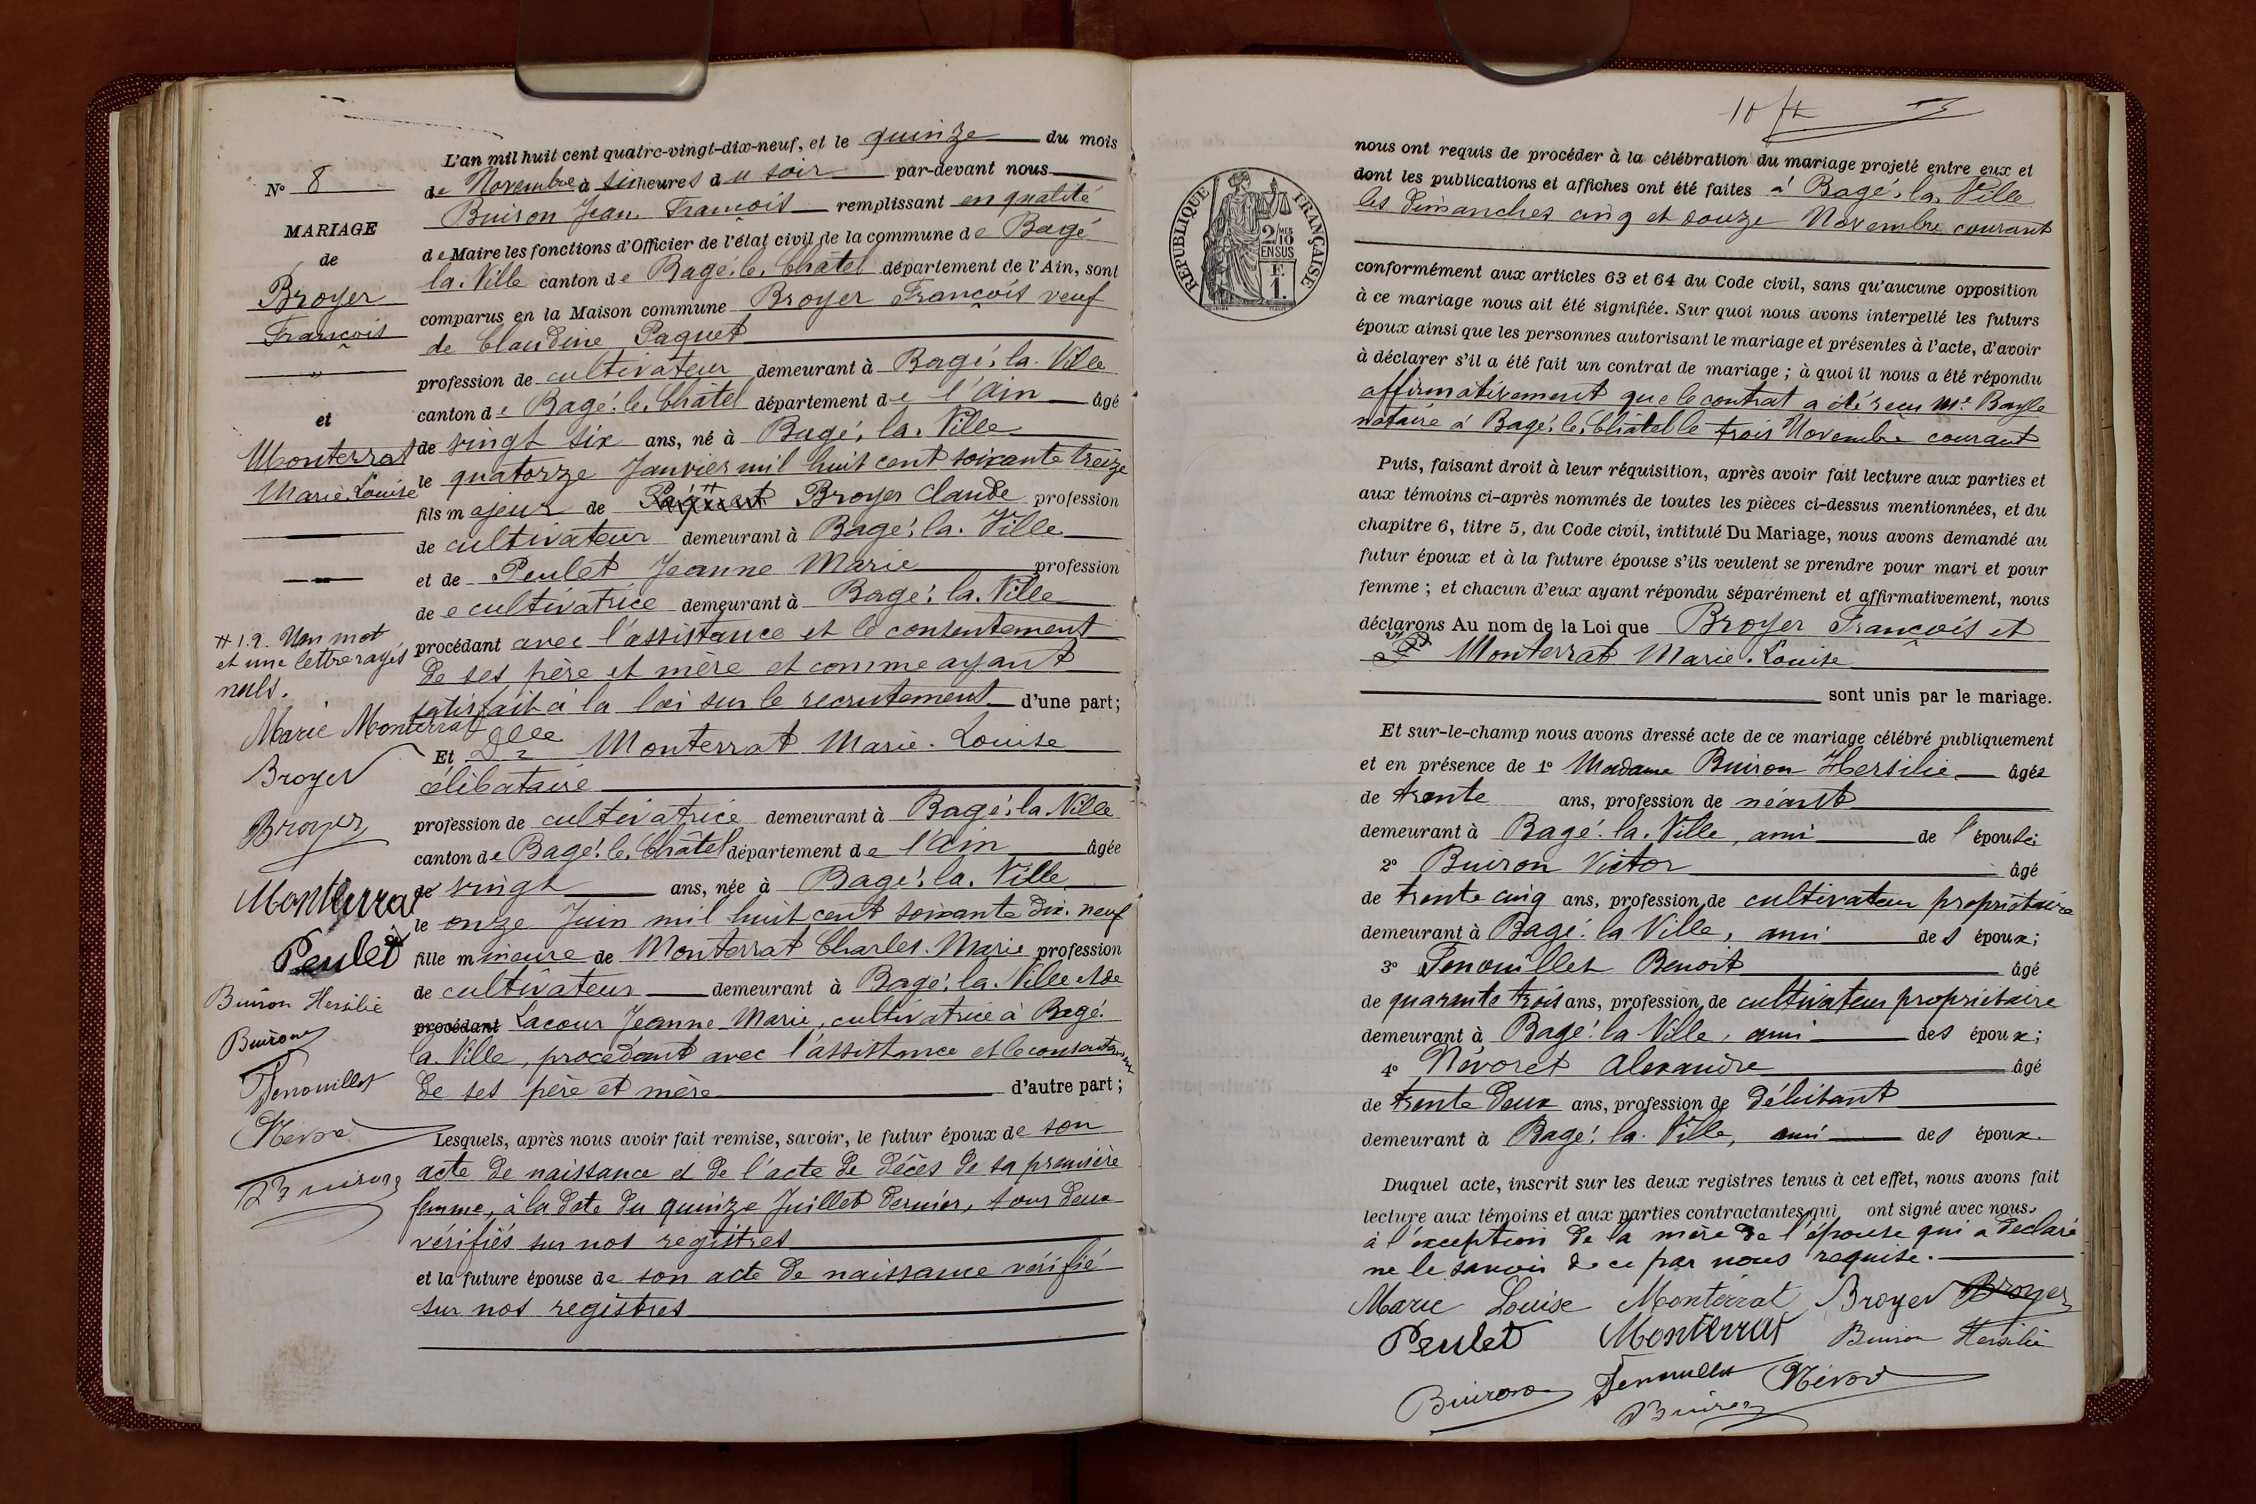 L'an mil huit cent quatre-vingt-dix-neuf, et le quinze du mois
N° 8
de Novembre à six heures du soir par-devant nous
Buiron Jean François remplissant en qualité
MARIAGE
de Maire les fonctions d'Officier de l'état civil de la commune de Bagé
de
la. Ville canton de Bagé. le. Châtel département de l'Ain, sont
Broyer
comparus en la Maison commune Broyer François veuf
François
de Claudine Paquet
"
profession de cultivateur demeurant à Bagé. la. Ville
canton de Bagé. le. Châtel département de l'Ain âgé
et
de vingt six ans, né à Bagé. la. Ville
Monterrat
le quatorze Janvier mil huit cent soixante treize
Marie. Louise
fils majeur de Paquet Broyer Claude profession
de cultivateur demeurant à Bagé. la. Ville
et de Peulet Jeanne Marie profession
de cultivatrice demeurant à Bagé. la. Ville
# 1. 2. Un mot
procédant avec l'assistance et le consentement
et une lettre rayés
de ses père et mère et comme ayant
nuls.
satisfait à la loi sur le recrutement d'une part;
Marie Monterrat
Et Dlle Monterrat Marie. Louise
Broyer
célibataire
Broyer
profession de cultivatrice demeurant à Bagé. la. Ville
canton de Bagé. le. Châtel département de l'Ain âgée
Monterrat
de vingt ans, née à Bagé. la. Ville
le onze Juin mil huit cent soixante dix. neuf
Peulet
fille mineure de Monterrat Charles. Marie profession
de cultivateur demeurant à Bagé. la. Ville et de
Buiron Hersilie
procédant Lacour Jeanne Marie, cultivatrice à Bagé.
Buiron
la. Ville, procédant avec l'assistance et le consentement
Fenouillet
de ses père et mère d'autre part;
Névoret
Lesquels, après nous avoir fait remise, savoir, le futur époux de son
Buiron
acte de naissance et de l'acte de décès de sa première
femme, à la date du quinze Juillet dernier, tous deux
vérifiés sur nos registres
et la future épouse de son acte de naissance vérifié
sur nos registres
RÉPUBLIQUE FRANÇAISE
2/10 MES
EN SUS
F.
1.
nous ont requis de procéder à la célébration du mariage projeté entre eux et
dont les publications et affiches ont été faites à Bagé. la. Ville
les dimanches cinq et douze Novembre courant
conformément aux articles 63 et 64 du Code civil, sans qu'aucune opposition
à ce mariage nous ait été signifiée. Sur quoi nous avons interpellé les futurs
époux ainsi que les personnes autorisant le mariage et présentes à l'acte, d'avoir
à déclarer s'il a été fait un contrat de mariage; à quoi il nous a été répondu
affirmativement que le contrat a été reçu Me Bayle
notaire à Bagé. le. Châtel le trois Novembre courant
Puis, faisant droit à leur réquisition, après avoir fait lecture aux parties et
aux témoins ci-après nommés de toutes les pièces ci-dessus mentionnées, et du
chapitre 6, titre 5, du Code civil, intitulé Du Mariage, nous avons demandé au
futur époux et à la future épouse s'ils veulent se prendre pour mari et pour
femme; et chacun d'eux ayant répondu séparément et affirmativement, nous
déclarons Au nom de la Loi que Broyer François et
Monterrat Marie. Louise
sont unis par le mariage.
Et sur-le-champ nous avons dressé acte de ce mariage célébré publiquement
et en présence de 1° Madame Buiron Hersilie âgée
de trente ans, profession de néant
demeurant à Bagé. la. Ville, ami de l'épouse;
2° Buiron Victor âgé
de trente cinq ans, profession de cultivateur propriétaire
demeurant à Bagé. la Ville, ami des époux;
3° Fenouillet Benoit âgé
de quarante trois ans, profession de cultivateur propriétaire
demeurant à Bagé. la Ville, ami des époux;
4° Névoret Alexandre âgé
de trente deux ans, profession de débitant
demeurant à Bagé. la. Ville, ami des époux.
Duquel acte, inscrit sur les deux registres tenus à cet effet, nous avons fait
lecture aux témoins et aux parties contractantes qui ont signé avec nous.
à l'exception de la mère de l'épouse qui a déclaré
ne le savoir de ce par nous requise.
Marie Louise Monterrat Broyer Broyer
Peulet Monterrat Buiron Hersilie
Buiron Fenouillet Névoret
Buiron